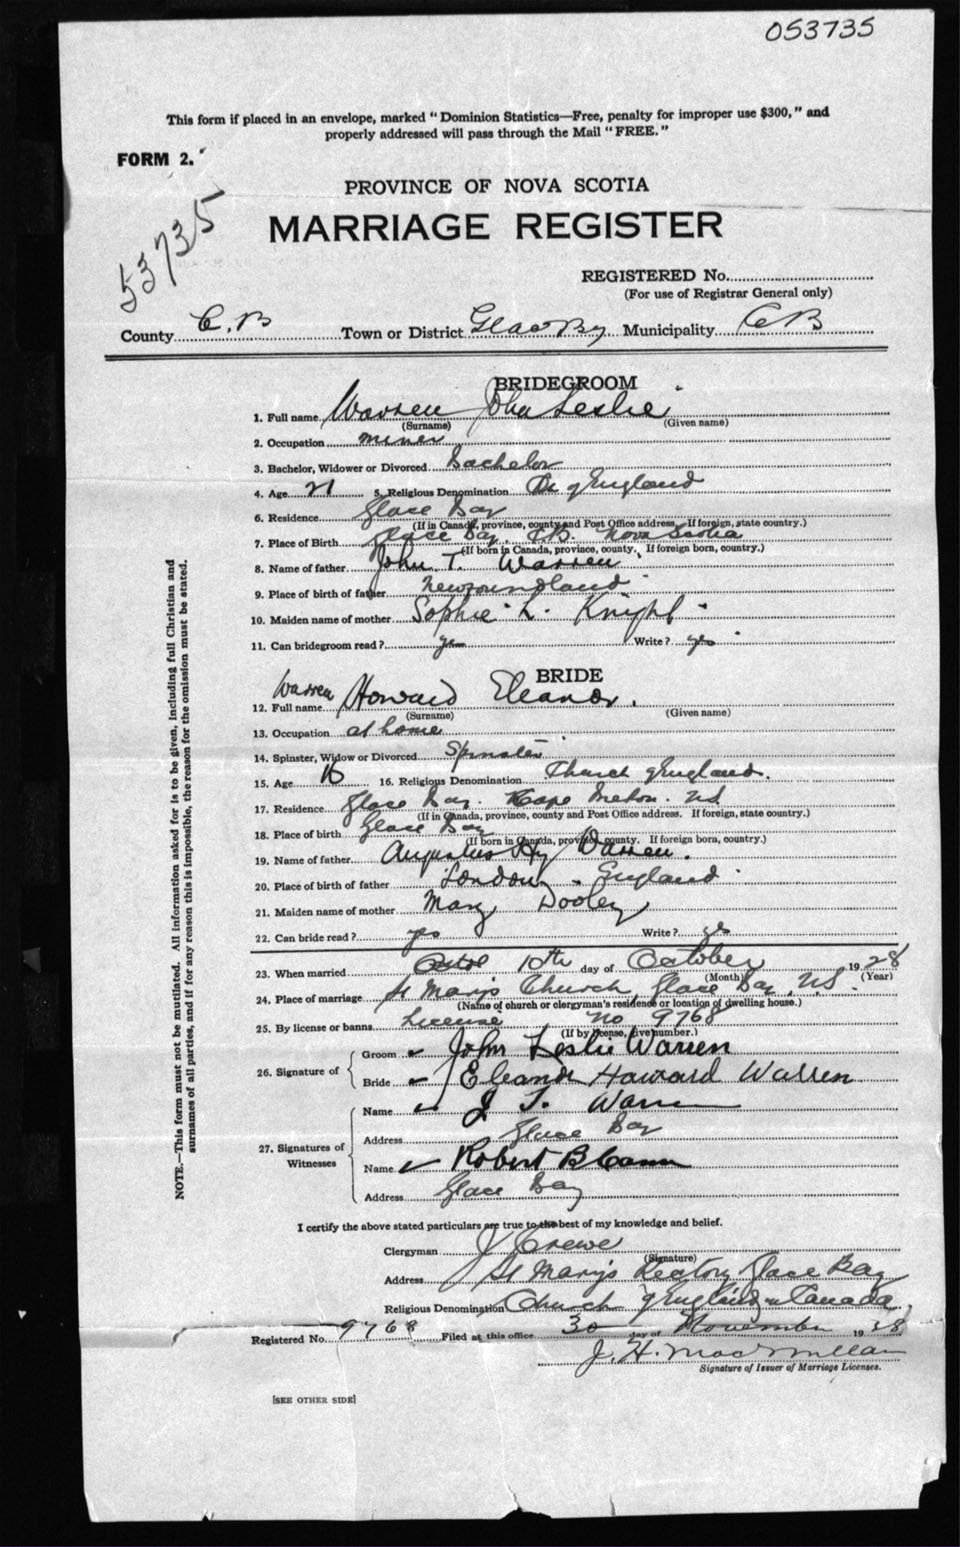 053735
This form if placed in an envelope, marked "Dominion Statistics—Free, penalty for improper use $300," and
properly addressed will pass through the Mail "FREE."
FORM 2.
53735
PROVINCE OF NOVA SCOTIA
MARRIAGE REGISTER
REGISTERED No.
(For use of Registrar General only)
County C.B Town or District Glace Bay Municipality C B
BRIDEGROOM
1. Full name Warren John Leslie
(Surname) (Given name)
2. Occupation miner
3. Bachelor, Widower or Divorced Bachelor
4. Age 21 5. Religious Denomination Ch of England
6. Residence Glace Bay
(If in Canada, province, county and Post Office address. If foreign, state country.)
7. Place of Birth Glace Bay, C.B. Nova Scotia
(If born in Canada, province, county. If foreign born, country.)
8. Name of father John T. Warren
9. Place of birth of father Newfoundland
10. Maiden name of mother Sophie L. Knight
11. Can bridegroom read? yes Write? yes
BRIDE
12. Full name Warren Howard Eleanor.
(Surname) (Given name)
13. Occupation at home
14. Spinster, Widow or Divorced Spinster
15. Age 16 16. Religious Denomination Church of England.
17. Residence Glace Bay. Cape Breton. N.S.
(If in Canada, province, county and Post Office address. If foreign, state country.)
18. Place of birth Glace Bay
(If born in Canada, province, county. If foreign born, country.)
19. Name of father Augustus Hy Warren.
20. Place of birth of father London, England
21. Maiden name of mother Mary Dooley
22. Can bride read? yes Write? yes
23. When married 10th day of October 1928
(Month) (Year)
24. Place of marriage St Mary's Church, Glace Bay, N.S.
(Name of church or clergyman's residence or location of dwelling house.)
25. By license or banns License No 9768
(If by license, give number.)
26. Signature of
Groom John Leslie Warren
Bride Eleanor Howard Warren
27. Signatures of Witnesses
Name J T. Warren
Address Glace Bay
Name Robert B Cann
Address Glace Bay
I certify the above stated particulars are true to the best of my knowledge and belief.
Clergyman J Crewe
(Signature)
Address St Mary's Rectory Glace Bay
Religious Denomination Church of England in Canada
Registered No. 9768 Filed at this office 30 day of November 19
J. H. MacMillan
Signature of Issuer of Marriage Licenses.
[SEE OTHER SIDE]
NOTE.—This form must not be mutilated. All information asked for is to be given, including full Christian and
surnames of all parties, and if for any reason this is impossible, the reason for the omission must be stated.